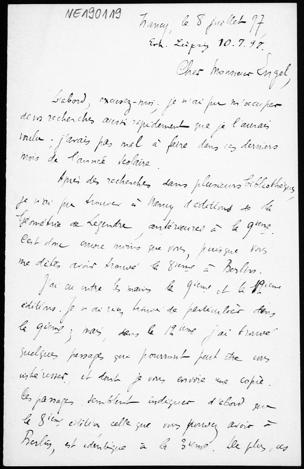 NE190119
Nancy, le 8 juillet 97
Erh. Leipzig 10.7.97.
Cher Monsieur Engel,
D'abord, excusez-moi; je n'ai pu m'occuper
de vos recherches aussi rapidement que je l'aurais
voulu; j'avais pas mal à faire dans ces derniers
mois de l'année scolaire.
Après des recherches dans plusieurs bibliothèques,
je n'ai pu trouver à Nancy d'editions de la
Géométrie de Legendre antérieures à la 9ième.
C'est donc encore moins que vous, puisque vous
me dites avoir trouvé la 8ième à Berlin.
J'ai eu entre les mains la 9ième et la 12ième
editions. Je n'ai rien trouvé de particulier dans
la 9ième; mais, dans la 12ième j'ai trouvé
quelques passages qui pourront peut être vous
intéresser, et dont je vous envoie une copie.
Ces passages semblent indiquer d'abord que
la 8ième edition celle que vous pouvez avoir à
Berlin, est identique à la 3ième. De plus, ces